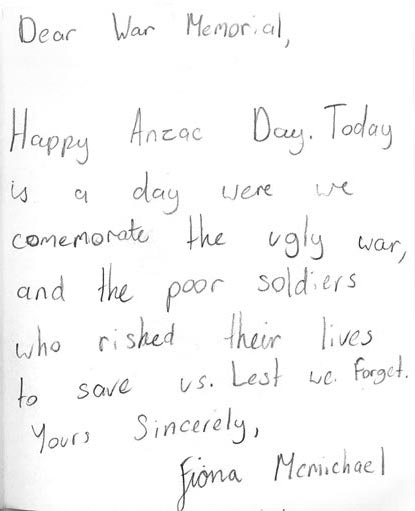 Dear War Memorial,
Happy Anzac Day. Today
is a day were we
comemorate the ugly war,
and the poor soldiers
who risked their lives
to save us. Lest we. Forget.
Yours Sincerely,
Fiona Mcmichael